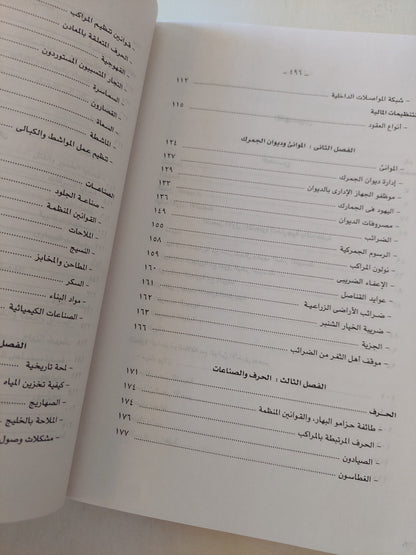 – ٤٩٦ –
– شبكة المواصلات الداخلية ١١٢
التنظيمات المالية ١١٥
– أنواع العقود
الفصل الثانى : الموانئ وديوان الجمرك ١٢٤
– الموانئ ١٢٧
– إدارة ديوان الجمرك ١٢٩
– موظفو الجهاز الإدارى بالديوان ١٣٣
– اليهود فى الجمارك ١٣٦
– مصروفات الديوان ١٤٩
– الضرائب ١٥٥
– الرسوم الجمركية ١٥٨
– نولون المراكب ١٥٩
– الإعفاء الضريبى ١٦٠
– عوايد القناصل ١٦١
– ضرائب الأراضى الزراعية ١٦٢
– ضريبة الخيار الشنبر ١٦٣
– الجزية ١٦٦
– موقف أهل الثغر من الضرائب
الفصل الثالث : الحرف والصناعات ١٧١
الحرف ١٧٤
– طائفة حزامو البهار، والقوانين المنظمة ١٧٤
– الحرف المرتبطة بالمراكب ١٧٦
– الصيادون ١٧٧
– الغطاسون
قوانين تنظيم المراكب
الحرف المتعلقة بالمعادن
– القهوجية
– التجار المتسببون المستوردون
– السماسرة
– القصارون
– السعاة
– الماشطة
– تنظيم عمل المواشط والكبالى
الصناعات
– صناعة الجلود
– القوانين المنظمة
– الملاحات
– النسيج
– المطاحن والمخابز
– السكر
– مواد البناء
– الصناعات الكيميائية
الفصل
– لمحة تاريخية
– كيفية تخزين المياه
– الصهاريج
– الملاحة بالخليج
– مشكلات وصول